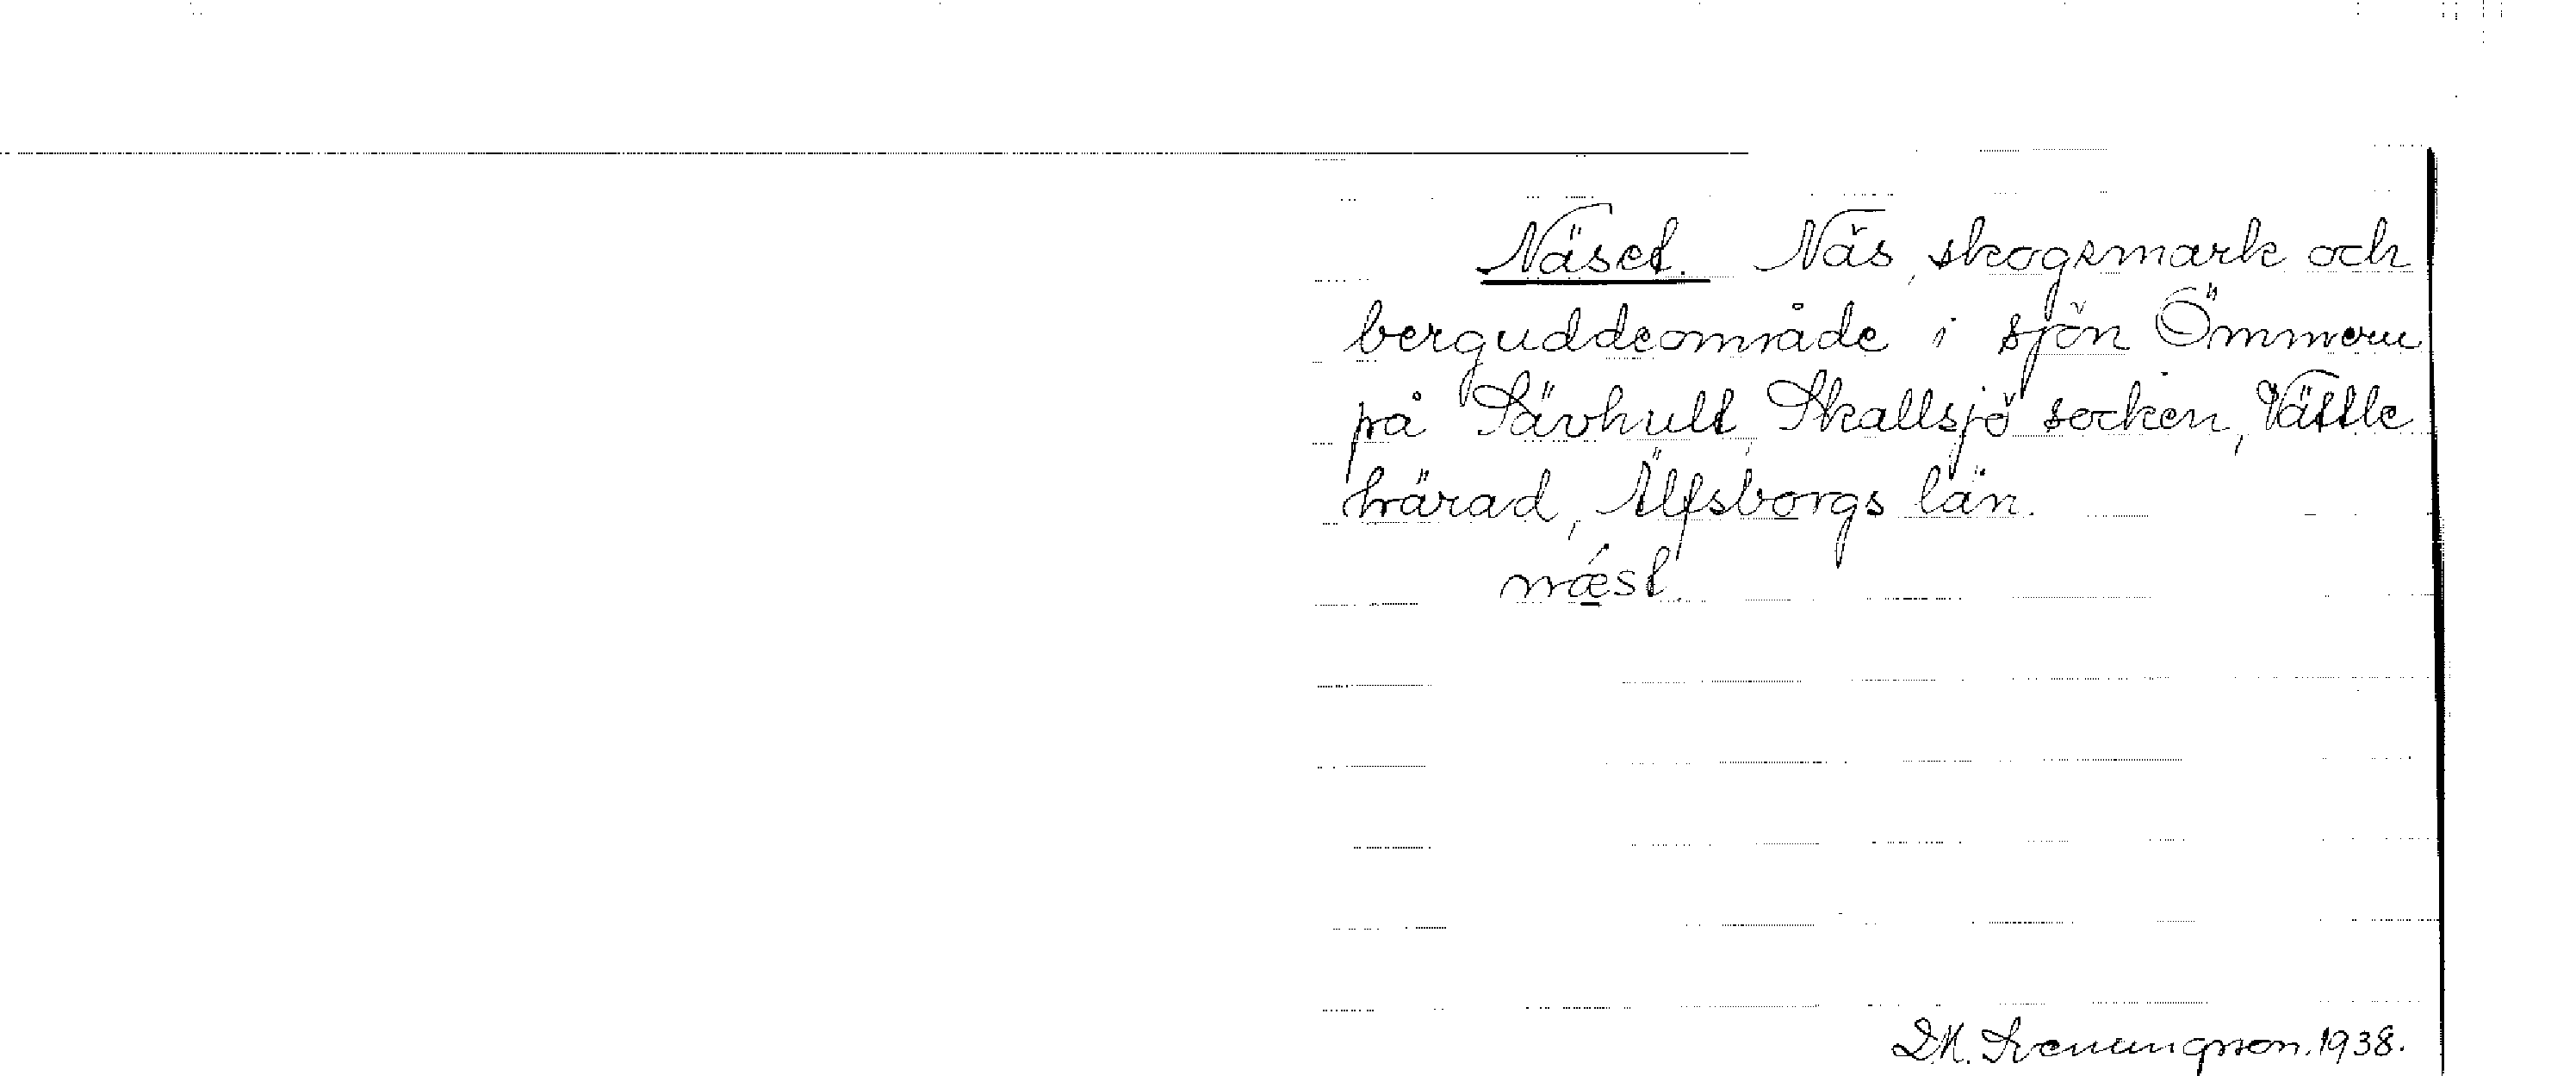 Näset. Näs, skogsmark och
berguddeområde i sjön Ömmern
på Sävhult, Skallsjö socken, Vättle
härad, Älfsborgs län.
nǽ̱st.
D.M. Svenungsson. 1938.